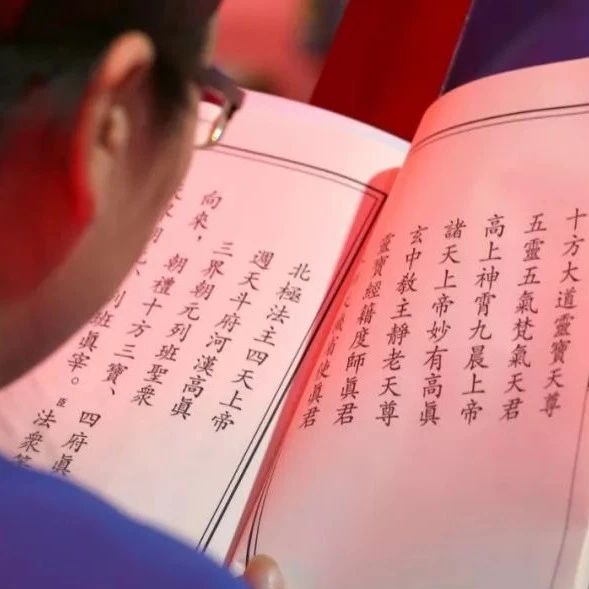 十方大道靈寶天尊
五靈五氣梵氣天君
高上神霄九晨上帝
諸天上帝妙有高眞
玄中教主靜老天尊
靈寶經籍度師眞君
使眞君
北極法主四天上帝
週天斗府河漢高眞
三界朝元列班聖衆
向來，朝禮十方三寶、四府眞
列班眞宰。臣法衆等